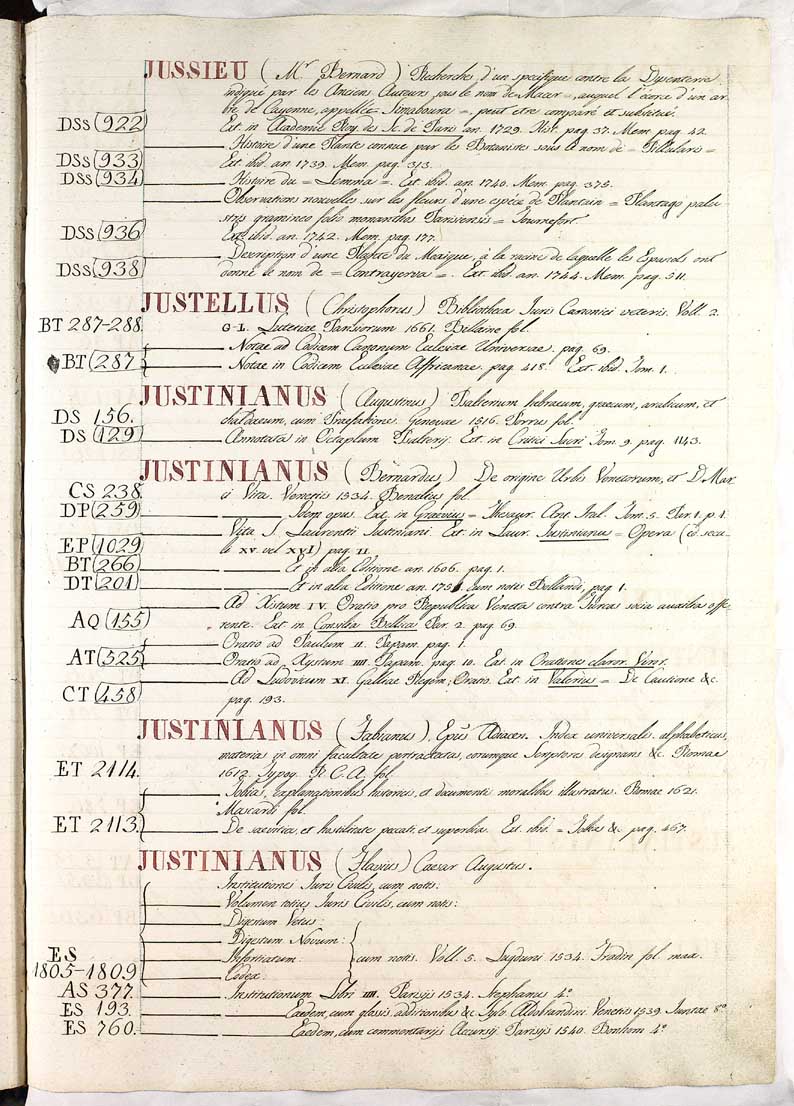 JUSSIEU (Mr Bernard) Recherches d'un specifique contre la Dysenterie
indiqué par les Anciens Auteurs sous le nom de Macer =, auquel l'écorce d'un ar=
bre de Cayenne, appellé = Simaboura =, peut etre comparé et substitué.
DSs (922) Ext. in Academie Roy. des Sc. de Paris an. 1729. Hist. pag. 37. Mem. pag. 42.
Histoire d'une Plante connue par les Botanistes sous le nom de = Pillularis =
DSs (933) Ext. ibid. an 1739. Mem. pag. 313.
DSs (934) Histoire du = Lemma =. Ext. ibid. an. 1740. Mem. pag. 375.
Observations nouvelles sur les fleurs d'une espéce de Plantain = Plantago palu=
stris gramineo folio monanthos Parisiensis = Tournefort.
DSs (936) Ext. ibid. an. 1742. Mem. pag. 177.
Description d'une Plante du Mexique, à la racine de laquelle les Espanols ont
DSs (938) donné le nom de = Contrayerva =. Ext. ibid. an. 1744. Mem. pag. 511.
JUSTELLUS (Christophorus) Bibliotheca Iuris Canonici veteris. Voll. 2.
BT 287-288. G-L. Lutetiae Parisiorum 1661. Billaine fol.
Notae ad Codicem Canonum Ecclesiae Universae. pag. 69.
BT (287) Notae in Codicem Ecclesiae Affricanae. pag. 418. Ext. ibid. Tom. 1.
JUSTINIANUS (Augustinus) Psalterium hebraeum, graecum, arabicum, et
DS 156. chaldaeum, cum Praefatione. Genevae 1516. Porrus fol.
DS (129) Annotata in Octaplum Psalterij. Ext. in Critici Sacri Tom. 9. pag. 1143.
JUSTINIANUS (Bernardus) De origine Urbis Venetorum, et D. Mar=
CS 238. ci Vita. Venetiis 1534. Benalius fol.
DP (259) Idem opus. Ext. in Graevius = Thesaur. Ant. Ital. Tom. 5. Par. 1. p. 1.
Vita S. Laurentii Iustiniani. Ext. in Laur. Justinianus = Opera (ed. secu=
EP (1029 lo XV. vel XVI) pag. II.
BT (266) Et in alia Editione an. 1606. pag. 1.
DT (201) Et in alia Editione an. 1751. cum notis Bollandi, pag 1.
Ad Xistum IV. Oratio pro Republica Veneta contra Turcas socia auxilia offe=
AQ (155) rente. Ext. in Consilia Bellica Par. 2. pag 69.
Oratio ad Paulum II. Papam. pag. 1.
AT (525) Oratio ad Xystum IIII. Papam. pag. 10. Ext. in Orationes claror. Viror.
Ad Ludovicum XI. Galliae Regem; Oratio. Ext. in Valerius = De Cautione &c.
CT (458) pag. 193.
JUSTINIANUS (Fabianus), Epus Adiacen. Index universalis alphabeticus,
materias in omni facultate pertractatas, earumque Scriptores designans &c. Romae
ET 2114. 1612. Typog. R. C. A. fol.
Tobias, explanationibus historicis, et documentis moralibus illustratus. Romae 1621.
Mascardi fol.
ET 2113. De saevitia, et hostilitate pacati, et superbia. Ext. ibid. = Tobias &c. pag. 467.
JUSTINIANUS (Flavius) Caesar Augustus.
Institutiones Iuris Civilis, cum notis:
Volumen totius Iuris Civilis, cum notis:
Digestum Vetus:
Digestum Novum:
ES Infortiatum: cum notis. Voll. 5. Lugduni 1534. Fradin fol. max.
1805-1809 Codex:
AS 377. Institutionum Libri IIII. Parisijs 1534. Stephanus 4°
ES 193. Eaedem, cum glossis, additionibus &c. Sylv. Aldobrandini. Venetiis 1539. Juntae 8°
ES 760. Eaedem, cum commentarijs Accursij. Parisijs 1540. Bonhom 4°